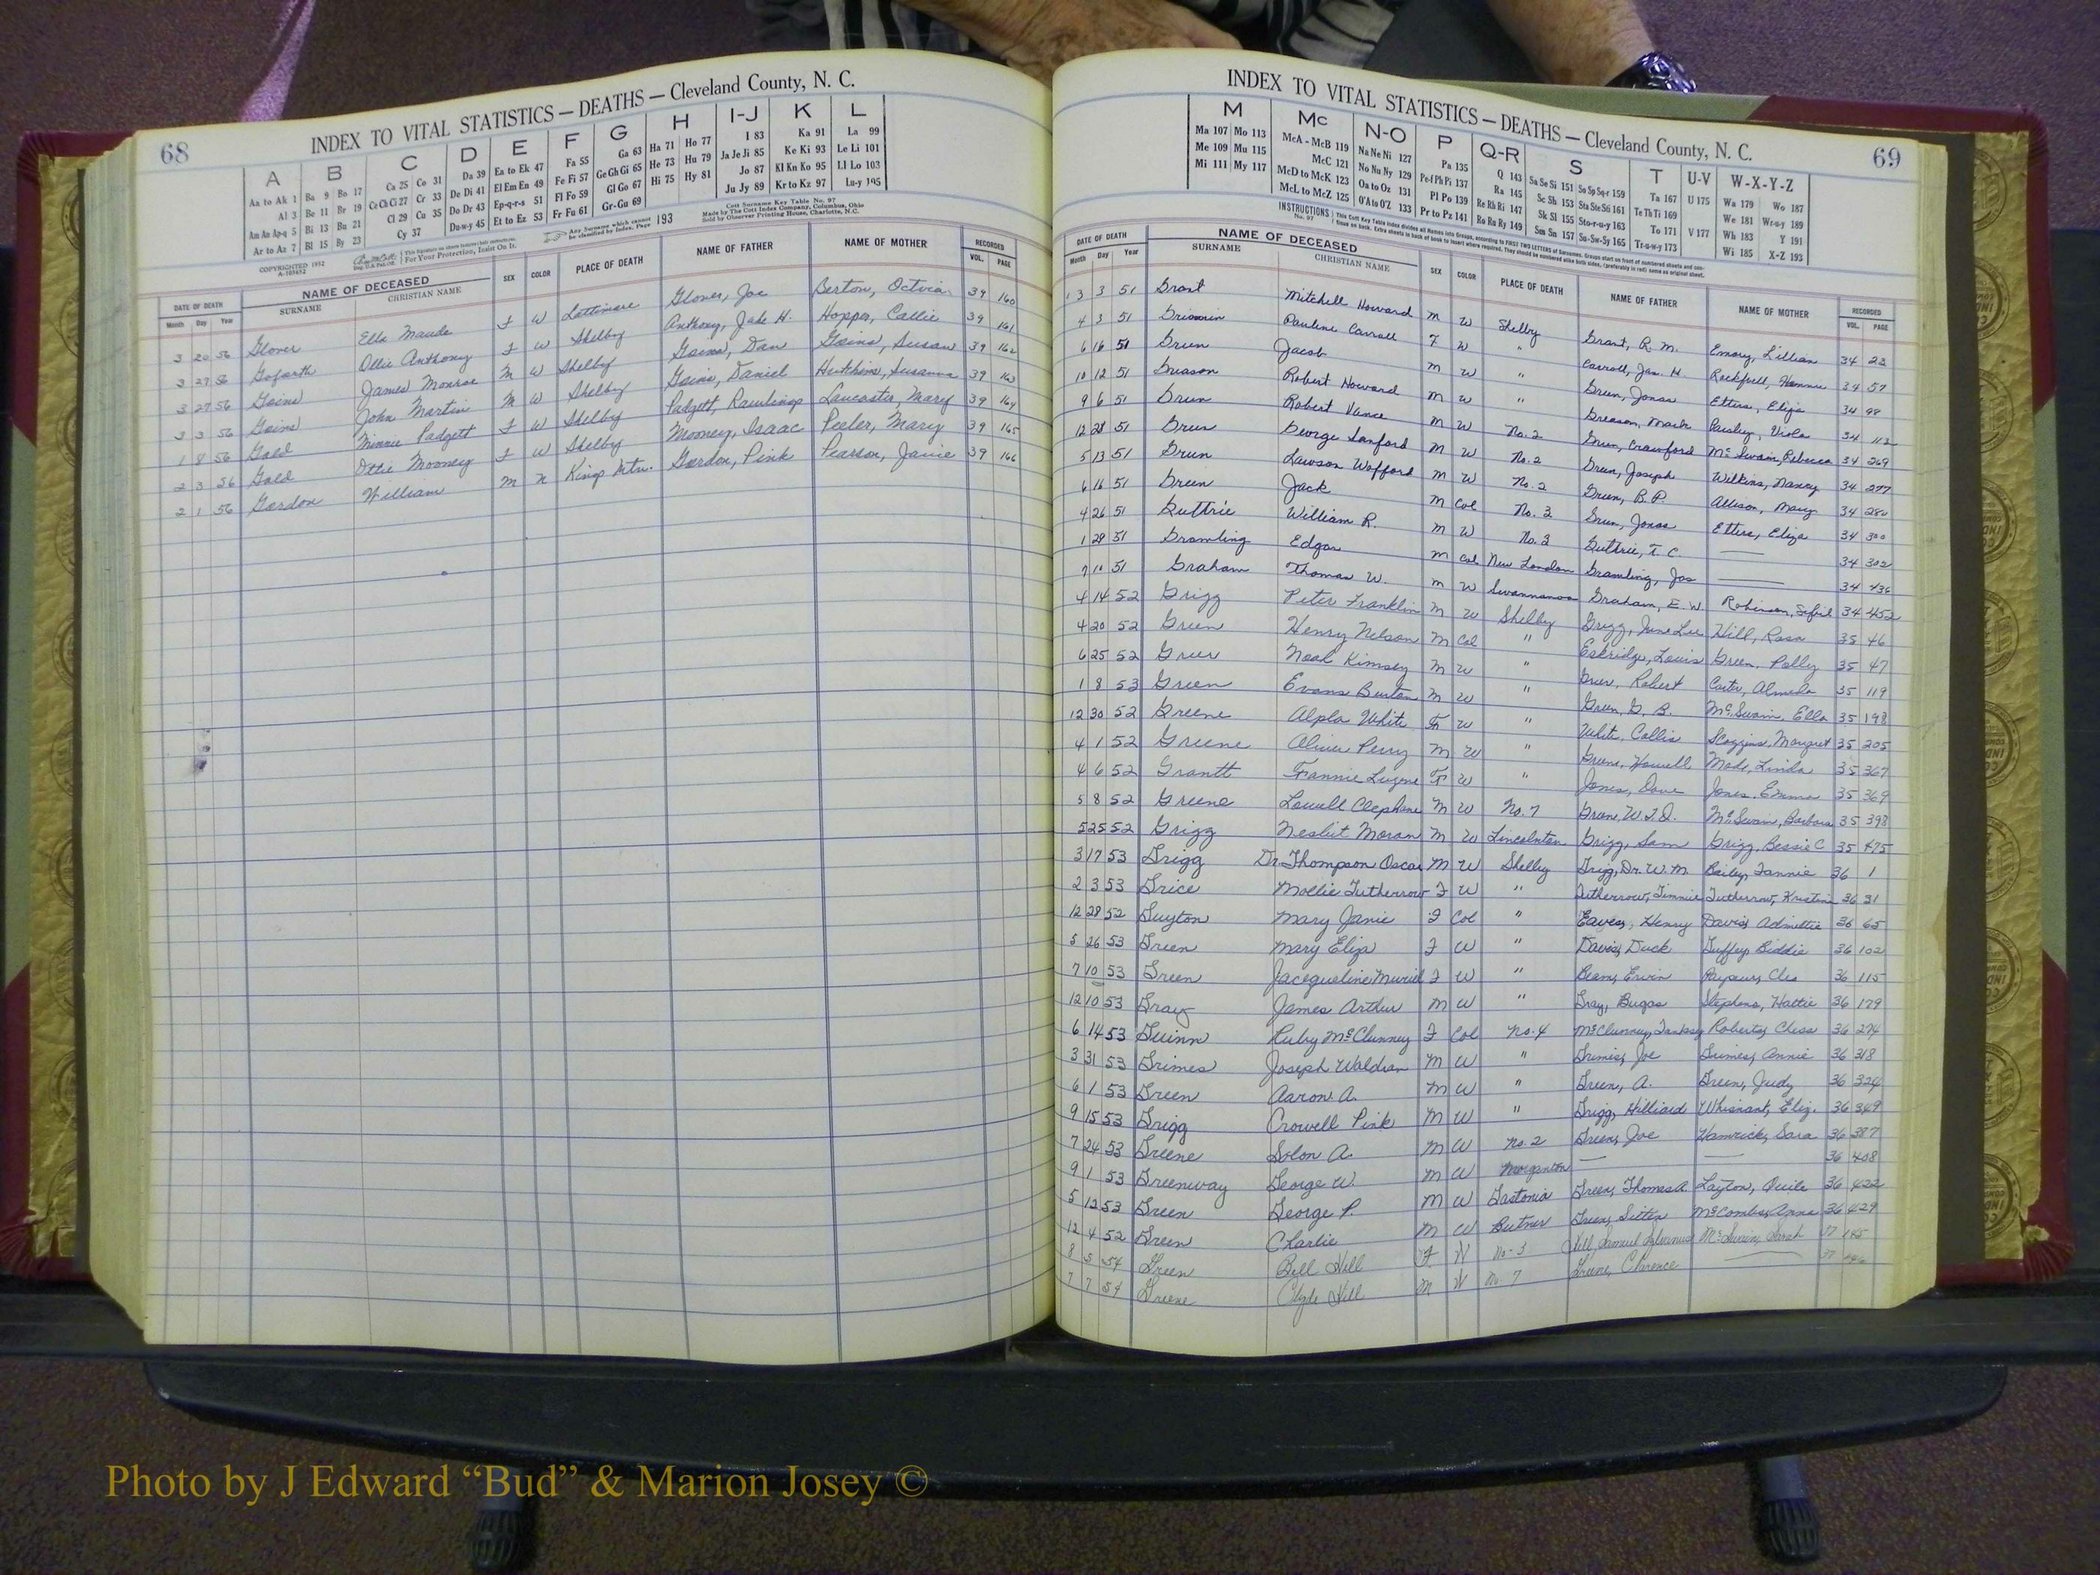 68
INDEX TO VITAL STATISTICS — DEATHS — Cleveland County, N. C.
A B C D E F G H I-J K L
Aa to Ak 1 Ba 9 Bo 17 Ca 25 Co 31 Da 39 Ea to Ek 47 Fa 55 Ga 63 Ha 71 Ho 77 I 83 Ka 91 La 99
Al 3 Be 11 Br 19 Ce Ch Ci 27 Cr 33 De Di 41 El Em En 49 Fe Fi 57 Ge Gh Gi 65 He 73 Hu 79 Ja Je Ji 85 Ke Ki 93 Le Li 101
Am An Ap-q 5 Bi 13 Bu 21 Cl 29 Cu 35 Do Dr 43 Ep-q-r-s 51 Fl Fo 59 Gl Go 67 Hi 75 Hy 81 Jo 87 Kl Kn Ko 95 Ll Lo 103
Ar to Az 7 Bl 15 By 23 Cy 37 Du-w-y 45 Et to Ez 53 Fr Fu 61 Gr-Gu 69 Ju Jy 89 Kr to Kz 97 Lu-y 105
COPYRIGHTED 1952
For Your Protection, Insist On It.
Any Surname which cannot be classified by Index, Page 193
Cott Surname Key Table No. 97
Made by The Cott Index Company, Columbus, Ohio
Sold by Observer Printing House, Charlotte, N.C.
DATE OF DEATH NAME OF DECEASED SEX COLOR PLACE OF DEATH NAME OF FATHER NAME OF MOTHER RECORDED
Month Day Year SURNAME CHRISTIAN NAME VOL. PAGE
3 20 56 Glover Ella Maude F W Lattimore Glover, Joe Berton, Octvia 39 160
3 27 56 Goforth Ollie Anthony F W Shelby Anthony, Jake H. Hopper, Callie 39 161
3 27 56 Goins James Monroe M W Shelby Goins, Dan Goins, Susan 39 162
3 3 56 Goins John Martin M W Shelby Goins, Daniel Hutchins, Susanna 39 163
1 8 56 Gold Minnie Padgett F W Shelby Padgett, Rawlings Lancaster, Mary 39 164
2 3 56 Gold Ottie Mooney F W Shelby Mooney, Isaac Peeler, Mary 39 165
2 1 56 Gordon William M N Kings Mtn. Gordon, Pink Pearson, Janie 39 166
69
INDEX TO VITAL STATISTICS — DEATHS — Cleveland County, N. C.
M Mc N-O P Q-R S T U-V W-X-Y-Z
Ma 107 Mo 113 McA - McB 119 Na Ne Ni 127 Pa 135 Q 143 Sa Se Si 151 So Sp Sq-r 159 Ta 167 U 175 Wa 179 Wo 187
Me 109 Mu 115 McC 121 No Nu Ny 129 Pe-f Ph Pi 137 Ra 145 Sc Sh 153 Sta Ste Sti 161 Te Th Ti 169 We 181 Wr-u-y 189
Mi 111 My 117 McD to McK 123 Oa to Oz 131 Pl Po 139 Re Rh Ri 147 Sk Sl 155 Sto-r-u-y 163 To 171 V 177 Wh 183 Y 191
McL to McZ 125 O'A to O'Z 133 Pr to Pz 141 Ro Ru Ry 149 Sm Sn 157 Su-Sw-Sy 165 Tr-u-w-y 173 Wi 185 X-Z 193
INSTRUCTIONS No. 97
DATE OF DEATH NAME OF DECEASED SEX COLOR PLACE OF DEATH NAME OF FATHER NAME OF MOTHER RECORDED
Month Day Year SURNAME CHRISTIAN NAME VOL. PAGE
3 3 51 Grant Mitchell Howard M W Shelby Grant, R. M. Emory, Lillian 34 22
4 3 51 Pauline Carroll F W " Carroll, Jas. H. 34 57
6 16 51 Green Jacob M W " Green, Jonas Etters, Eliza 34 98
10 12 51 Greason Robert Howard M W " Greason, Mark Paisley, Viola 34 112
9 6 51 Green Robert Vance M W No. 2 Green, Crawford McSwain, Rebecca 34 269
12 28 51 Green George Sanford M W No. 2 Green, Joseph Wilkins, Nancy 34 277
5 13 51 Green Lawson Wofford M W No. 2 Green, B. P. Allison, Mary 34 280
6 16 51 Green Jack M Col No. 3 Green, Jonas Etters, Eliza 34 300
4 26 51 Guttrie William R. M W No. 3 Guthrie, T. C. 34 302
1 28 51 Gramling Edgar M Col New London Gramling, Jas 34 436
7 10 51 Graham Thomas W. M W Swannanoa Graham, E. W. Robinson, 34 452
4 14 52 Grigg Peter Franklin M W Shelby Grigg, June Lee Hill, Rosa 35 46
4 20 52 Green Henry Nelson M Col " Eskridge, Louis Green, Polly 35 47
6 25 52 Greer Noah Kimsey M W " Greer, Robert Carter, Almeda 35 119
1 8 53 Green Evans Burton M W " Green, G. B. McSwain, Ella 35 198
12 30 52 Greene Alpla White F W " White, Collis Scoggins, Margret 35 205
4 1 52 Greene Oliver Perry M W " Greene, Howell Mode, Linda 35 367
4 6 52 Grantt Fannie Eugene F W " Jones, Dave Jones, Emma 35 369
5 8 52 Greene Lowell Clephane M W No. 7 McSwain, Barbara 35 398
5 25 52 Grigg Nesbit Moran M W Lincolnton Grigg, Sam Grigg, Bessie C 35 475
3 17 53 Grigg Dr. Thompson Oscar M W Shelby Grigg, Dr. W. M. Bailey, Fannie 36 1
2 3 53 Grice Mollie Tutherrow F W " Tutherrow, Timmie Tutherrow, Kristin 36 31
12 28 52 Guyton Mary Janie F Col " Eaves, Henry Davis, Admettie 36 65
5 26 53 Green Mary Eliza F W " Davis, Duck Guffey, Biddie 36 102
7 10 53 Green Jacequeline Muriel F W " Beam, Ervin Payseur, Cleo 36 115
12 10 53 Gray James Arthur M W " Gray, Bugas Stephens, Hattie 36 179
6 14 53 Guinn Ruby McClunney F Col No. 4 McClunney, Roberts, Chess 36 274
3 31 53 Grimes Joseph Waldran M W " Grimes, Joe Grimes, Annie 36 318
6 1 53 Green Aaron A. M W " Green, A. Green, Judy 36 324
9 15 53 Grigg Crowell Pink M W " Grigg, Hilliard Whisnant, Eliz. 36 349
7 24 53 Greene Solon A. M W No. 2 Green, Joe Hamrick, Sara 36 387
9 1 53 Greenway George W. M W Morganton 36 408
5 12 53 Green George P. M W Gastonia Green, Thomas A. Layton, Quile 36 422
12 4 52 Green Charlie M W Butner Green, McCombs, Anna 36 429
8 5 54 Green Bell Hill F W No. 3 Hill, Samuel Sylvanus McSwain, Sarah 37 145
7 7 54 Greene Clyde Hill M W No. 7 Greene, Clarence 37
Photo by J Edward “Bud” & Marion Josey ©